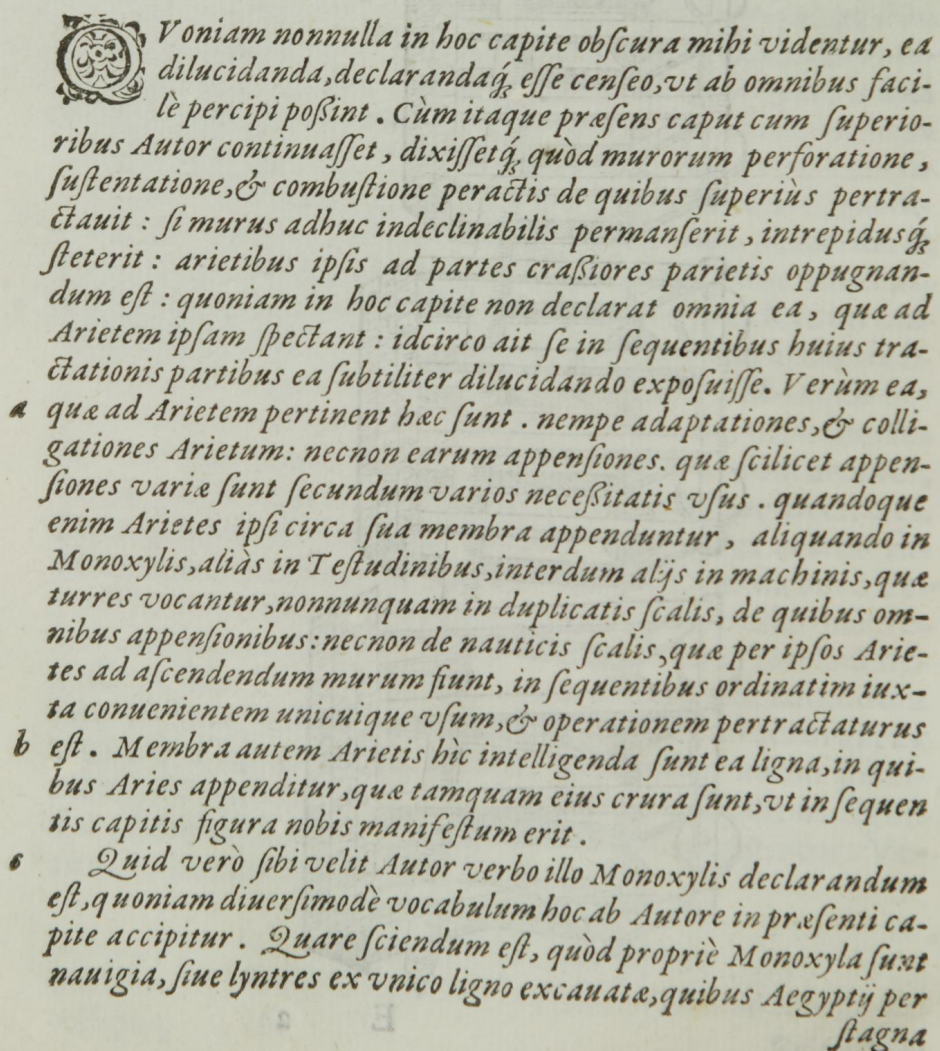 QVoniam nonnulla in hoc capite obſcura mihi videntur, ea
dilucidanda, declarandaq́; eſſe cenſeo, vt ab omnibus faci-
lè percipi poßint. Cùm itaque præſens caput cum ſuperio-
ribus Autor continuaſſet, dixiſſetq́; quòd murorum perforatione,
ſuſtentatione, & combuſtione peractis de quibus ſuperiùs pertra-
ctauit: ſi murus adhuc indeclinabilis permanſerit, intrepidusq́;
ſteterit: arietibus ipſis ad partes craßiores parietis oppugnan-
dum eſt: quoniam in hoc capite non declarat omnia ea, quæ ad
Arietem ipſam ſpectant: idcirco ait ſe in ſequentibus huius tra-
ctationis partibus ea ſubtiliter dilucidando expoſuiſſe. Verùm ea,
a quæ ad Arietem pertinent hæc ſunt. nempe adaptationes, & colli-
gationes Arietum: necnon earum appenſiones. quæ ſcilicet appen-
ſiones variæ ſunt ſecundum varios neceßitatis vſus. quandoque
enim Arietes ipſi circa ſua membra appenduntur, aliquando in
Monoxylis, aliàs in Teſtudinibus, interdum alijs in machinis, quæ
turres vocantur, nonnunquam in duplicatis ſcalis, de quibus om-
nibus appenſionibus: necnon de nauticis ſcalis, quæ per ipſos Arie-
tes ad aſcendendum murum fiunt, in ſequentibus ordinatim iux-
ta conuenientem unicuique vſum, & operationem pertractaturus
b eſt. Membra autem Arietis hìc intelligenda ſunt ea ligna, in qui-
bus Aries appenditur, quæ tamquam eius crura ſunt, vt in ſequen
tis capitis figura nobis manifeſtum erit.
c Quid verò ſibi velit Autor verbo illo Monoxylis declarandum
eſt, quoniam diuerſimodè vocabulum hoc ab Autore in præſenti ca-
pite accipitur. Quare ſciendum eſt, quòd propriè Monoxyla ſunt
nauigia, ſiue lyntres ex vnico ligno excauatæ, quibus Aegyptij per
ſtagna